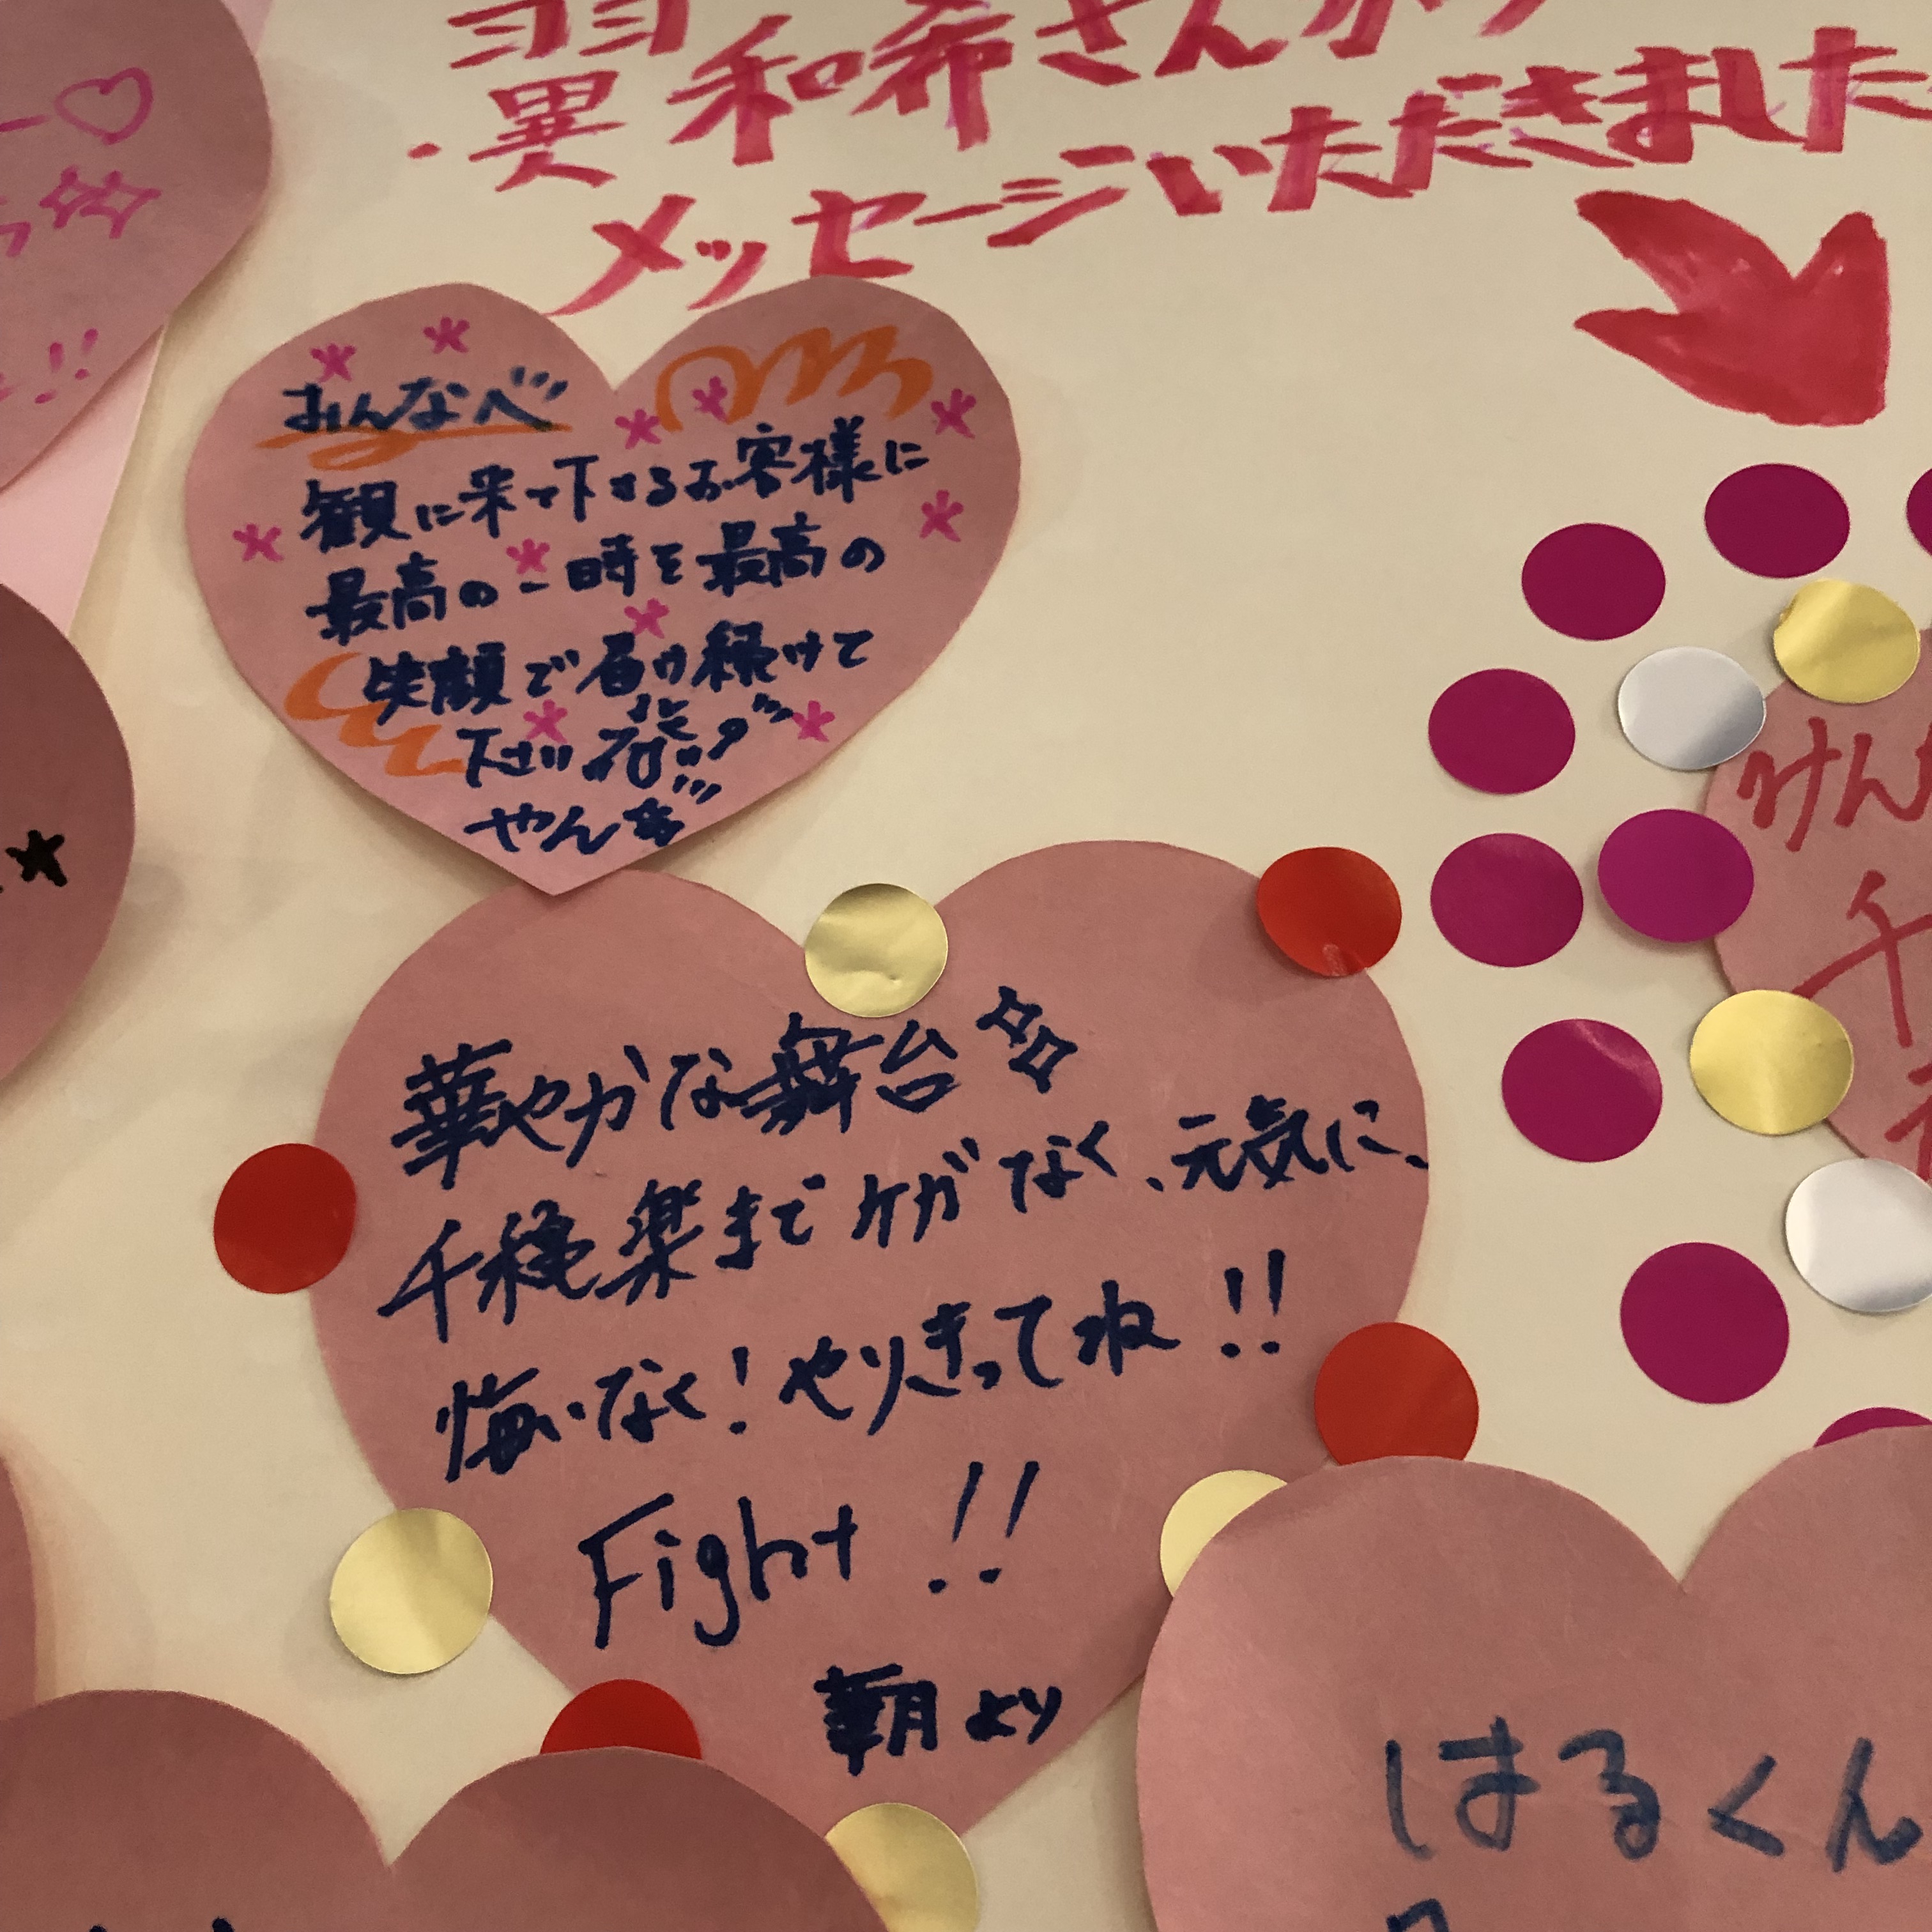 翼 和希さんから
メッセージいただきました
みんなへ
観に来て下さるお客様に
最高の一時を最高の
笑顔で届け続けて
下さい
華やかな舞台
千穐楽までケガなく、元気に、
悔いなく!やりきってね!!
Fight!!
より
はるくん
けん
千